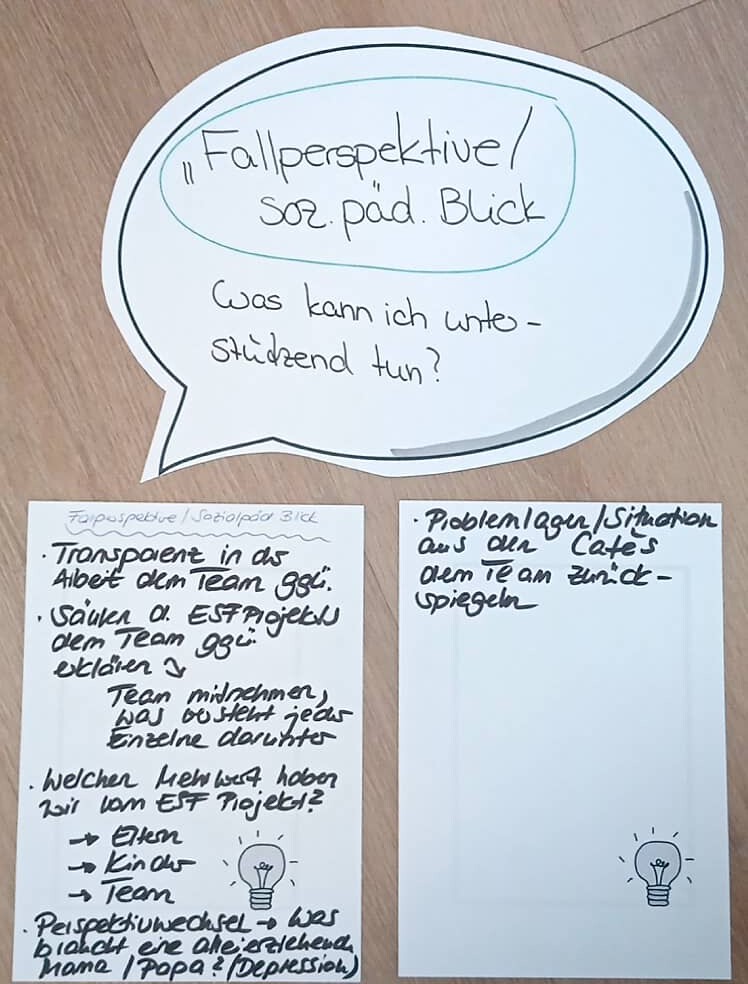 „Fallperspektive/
soz. päd. Blick
Was kann ich unter-
stützend tun?
Fallperspektive / Sozialpäd Blick
· Transparenz in der
Arbeit dem Team ggü.
· Säulen d. ESF Projekts
dem Team ggü.
erklären ↘
Team mitnehmen,
was versteht jeder
Einzelne darunter
· Welchen Mehrwert haben
wir vom ESF Projekt?
→ Eltern
→ Kinder
→ Team
· Perspektivwechsel → Was
braucht eine alleierziehende
Mama / Papa? (Depression)
· Problemlagen/Situation
aus den Cafés
dem Team zurück-
spiegeln